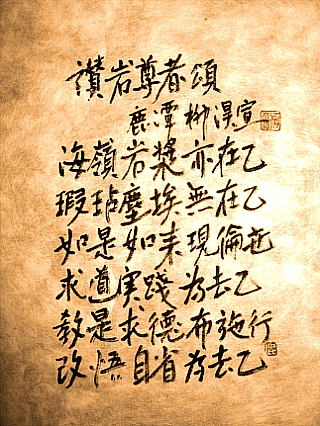 讚岩尊者頌
鹿潭 柳淏宣
海嶺岩漿亦在乙
瑕玷塵埃無在乙
如是如来現倫迤
求道實踐為去乙
教是求德布施行
改悟自省為去乙